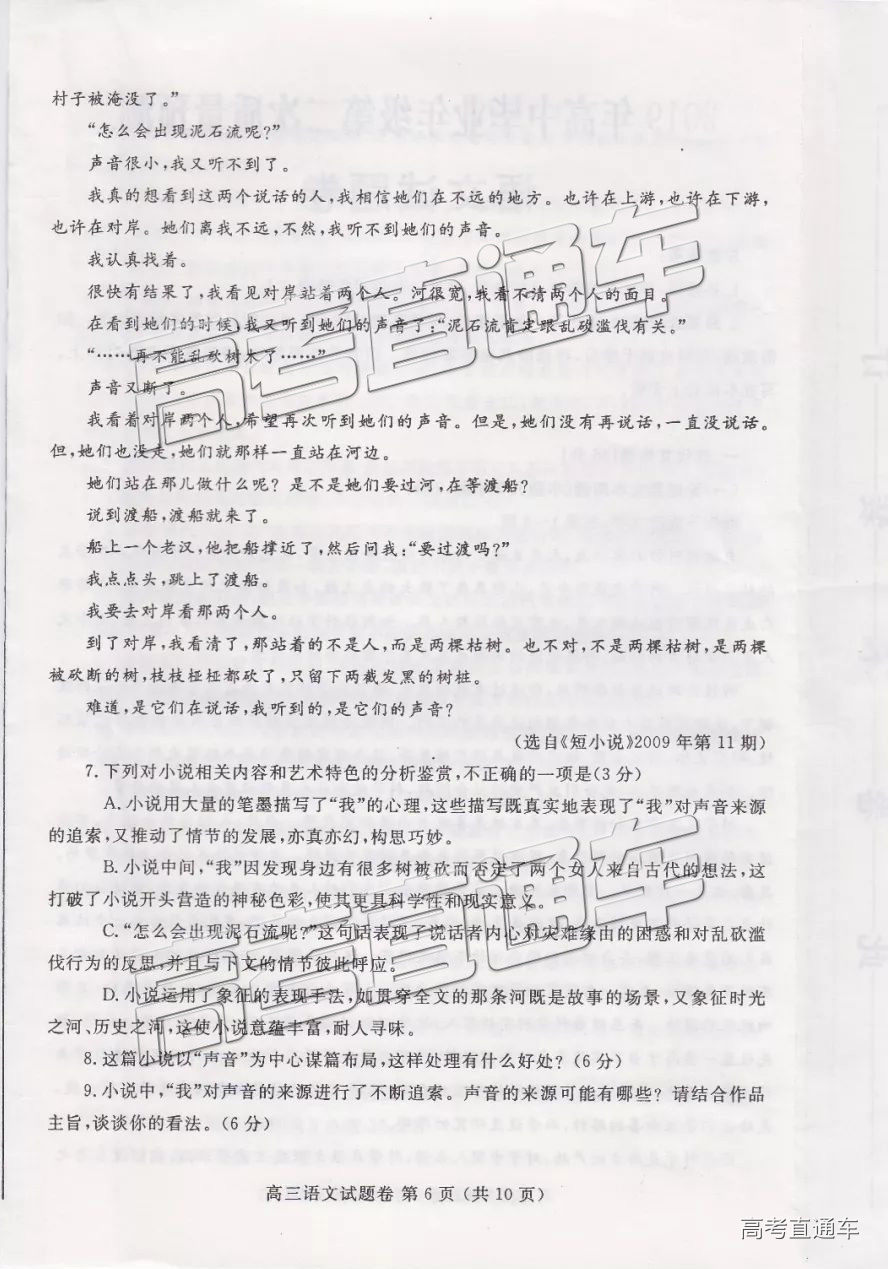 村子被淹没了。”
“怎么会出现泥石流呢?”
声音很小,我又听不到了。
我真的想看到这两个说话的人,我相信她们在不远的地方。也许在上游,也许在下游,
也许在对岸。她们离我不远,不然,我听不到她们的声音。
我认真找着。
很快有结果了,我看见对岸站着两个人。河很宽,我看不清两个人的面目。
在看到她们的时候,我又听到她们的声音了:“泥石流肯定跟乱砍滥伐有关。”
“……再不能乱砍树木了……”
声音又断了。
我看着对岸两个人,希望再次听到她们的声音。但是,她们没有再说话,一直没说话。
但,她们也没走,她们就那样一直站在河边。
她们站在那儿做什么呢? 是不是她们要过河,在等渡船?
说到渡船,渡船就来了。
船上一个老汉,他把船撑近了,然后问我:“要过渡吗?”
我点点头,跳上了渡船。
我要去对岸看那两个人。
到了对岸,我看清了,那站着的不是人,而是两棵枯树。也不对,不是两棵枯树,是两棵
被砍断的树,枝枝桠桠都砍了,只留下两截发黑的树桩。
难道,是它们在说话,我听到的,是它们的声音?
(选自《短小说》2009年第11期)
7.下列对小说相关内容和艺术特色的分析鉴赏,不正确的一项是(3分)
A.小说用大量的笔墨描写了“我”的心理,这些描写既真实地表现了“我”对声音来源
的追索,又推动了情节的发展,亦真亦幻,构思巧妙。
B.小说中间,“我”因发现身边有很多树被砍而否定了两个女人来自古代的想法,这
打破了小说开头营造的神秘色彩,使其更具科学性和现实意义。
C.“怎么会出现泥石流呢?”这句话表现了说话者内心对灾难缘由的困惑和对乱砍滥
伐行为的反思,并且与下文的情节彼此呼应。
D.小说运用了象征的表现手法,如贯穿全文的那条河既是故事的场景,又象征时光
之河、历史之河,这使小说意蕴丰富,耐人寻味。
8.这篇小说以“声音”为中心谋篇布局,这样处理有什么好处?(6分)
9.小说中,“我”对声音的来源进行了不断追索。声音的来源可能有哪些? 请结合作品
主旨,谈谈你的看法。(6分)
高三语文试题卷 第6页(共10页)
高考直通车
高考直通车
高考直通车